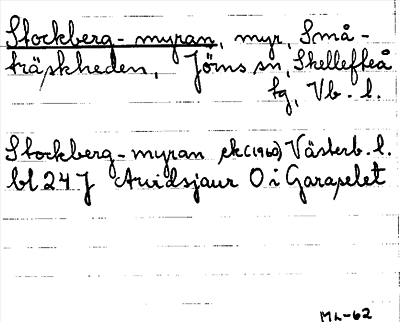 Stockberg-myran, myr, Små-
träskheden, Jörns sn, Skellefteå
tg, Vb. l.
Stockberg-myran ek (1960) Västerb. l.
bl 24 J Arvidsjaur O i Garapelet
ML-62